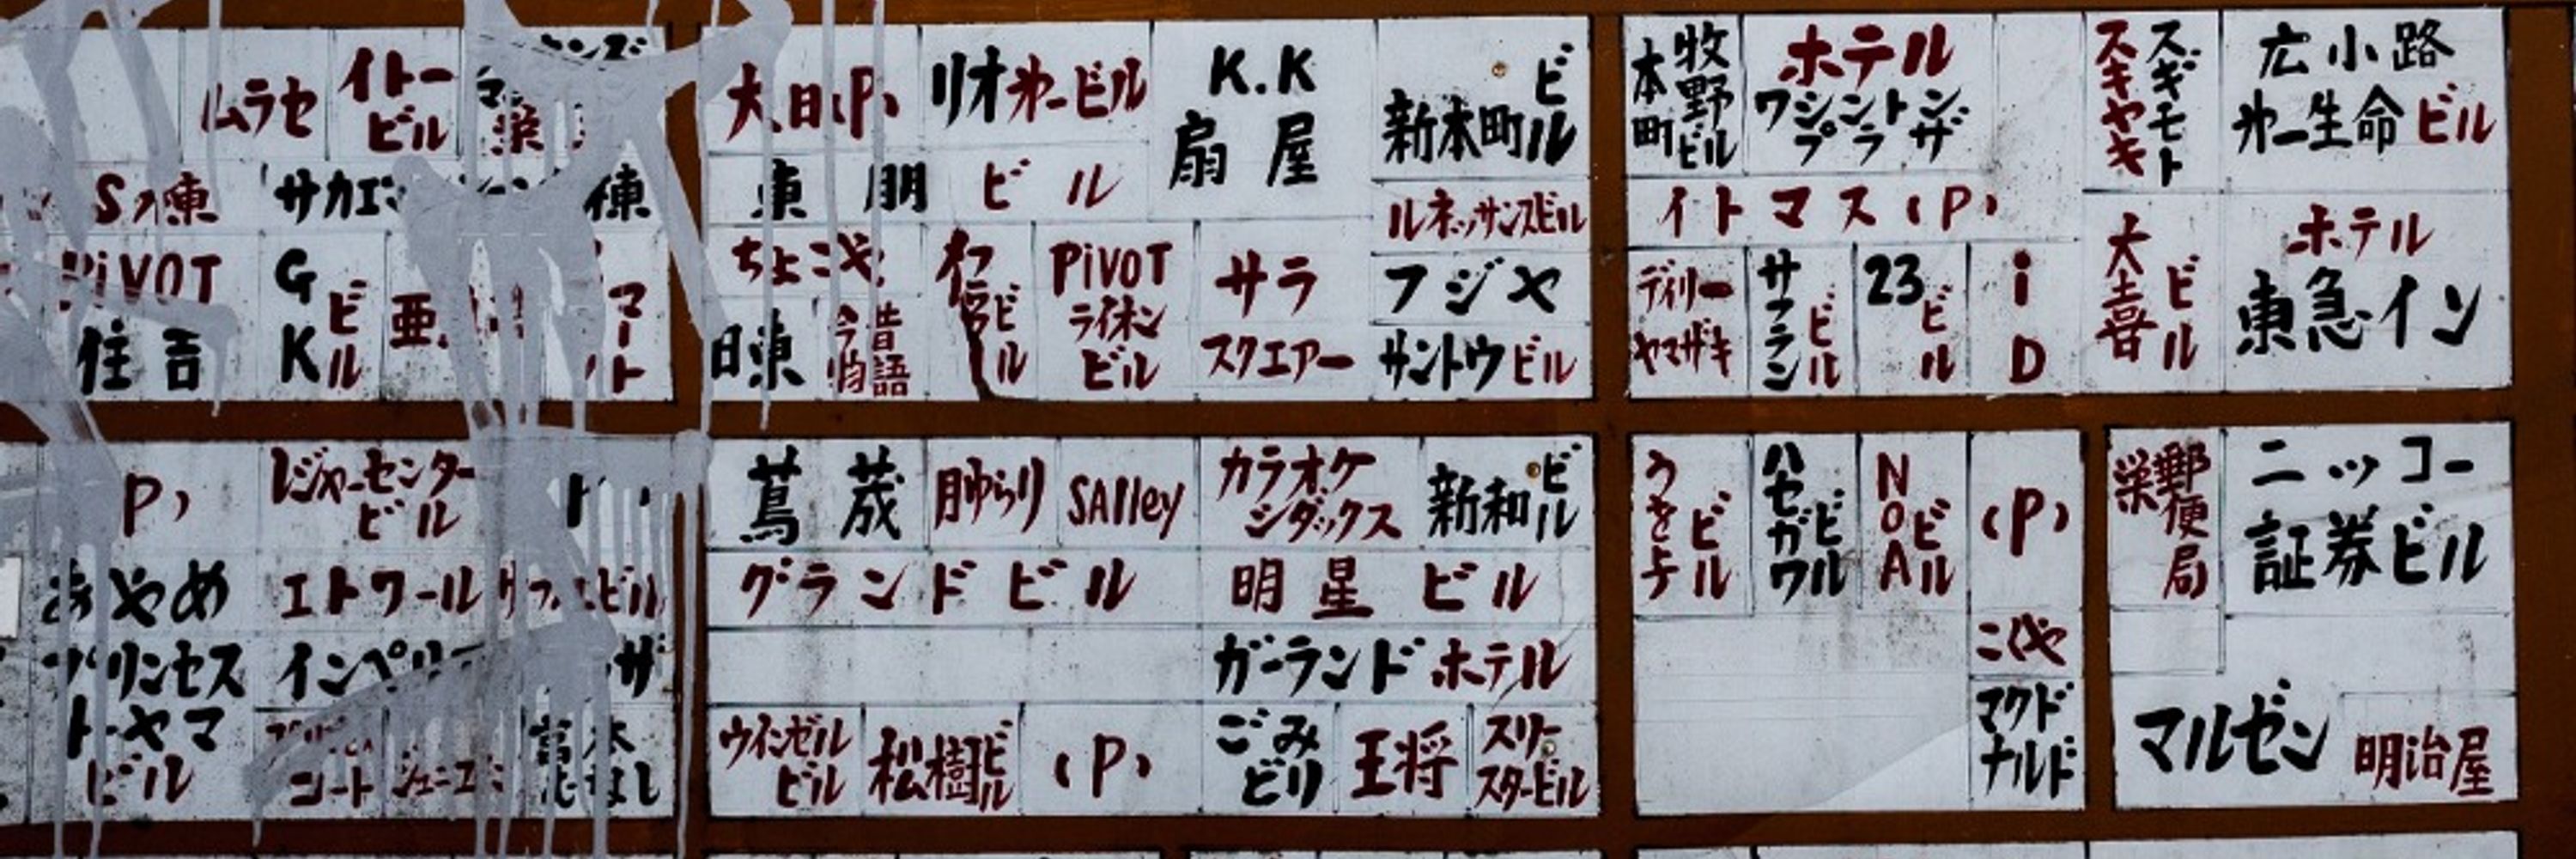 ムラセ
イトー
ビル
S
東
サカエ
東
PiVOT
住吉
GK
ビル
亜
マート
大日(P)
リオ㐧一ビル
K.K
扇屋
新本町ビル
東朋ビル
ルネッサンスビル
ちよこや
PiVOT
ライオン
ビル
サラ
スクエアー
フジヤ
日東
今昔
物語
サントウビル
牧野ビル
本町
ホテル
ワシントン
プラザ
スギモト
スキヤキ
広小路
㐧一生命ビル
イトマス(P)
デイリー
ヤマザキ
サフラン
ビル
23
ビル
iD
大喜
ビル
ホテル
東急イン
P)
レジャーセンター
ビル
あやめ
エトワール
ビル
プリンセス
トーヤマ
ビル
コート
蔦茂
月ゆらり
SAlley
カラオケ
シダックス
新和ビル
グランドビル
明星ビル
ガーランドホテル
ウインゼル
ビル
松樹ビル
(P)
ごみ
どり
王将
スリー
スタービル
ビル
ハセガワ
ビル
NoA
ビル
(P)
マクド
ナルド
郵便局
栄
ニッコー
証券ビル
マルゼン
明治屋